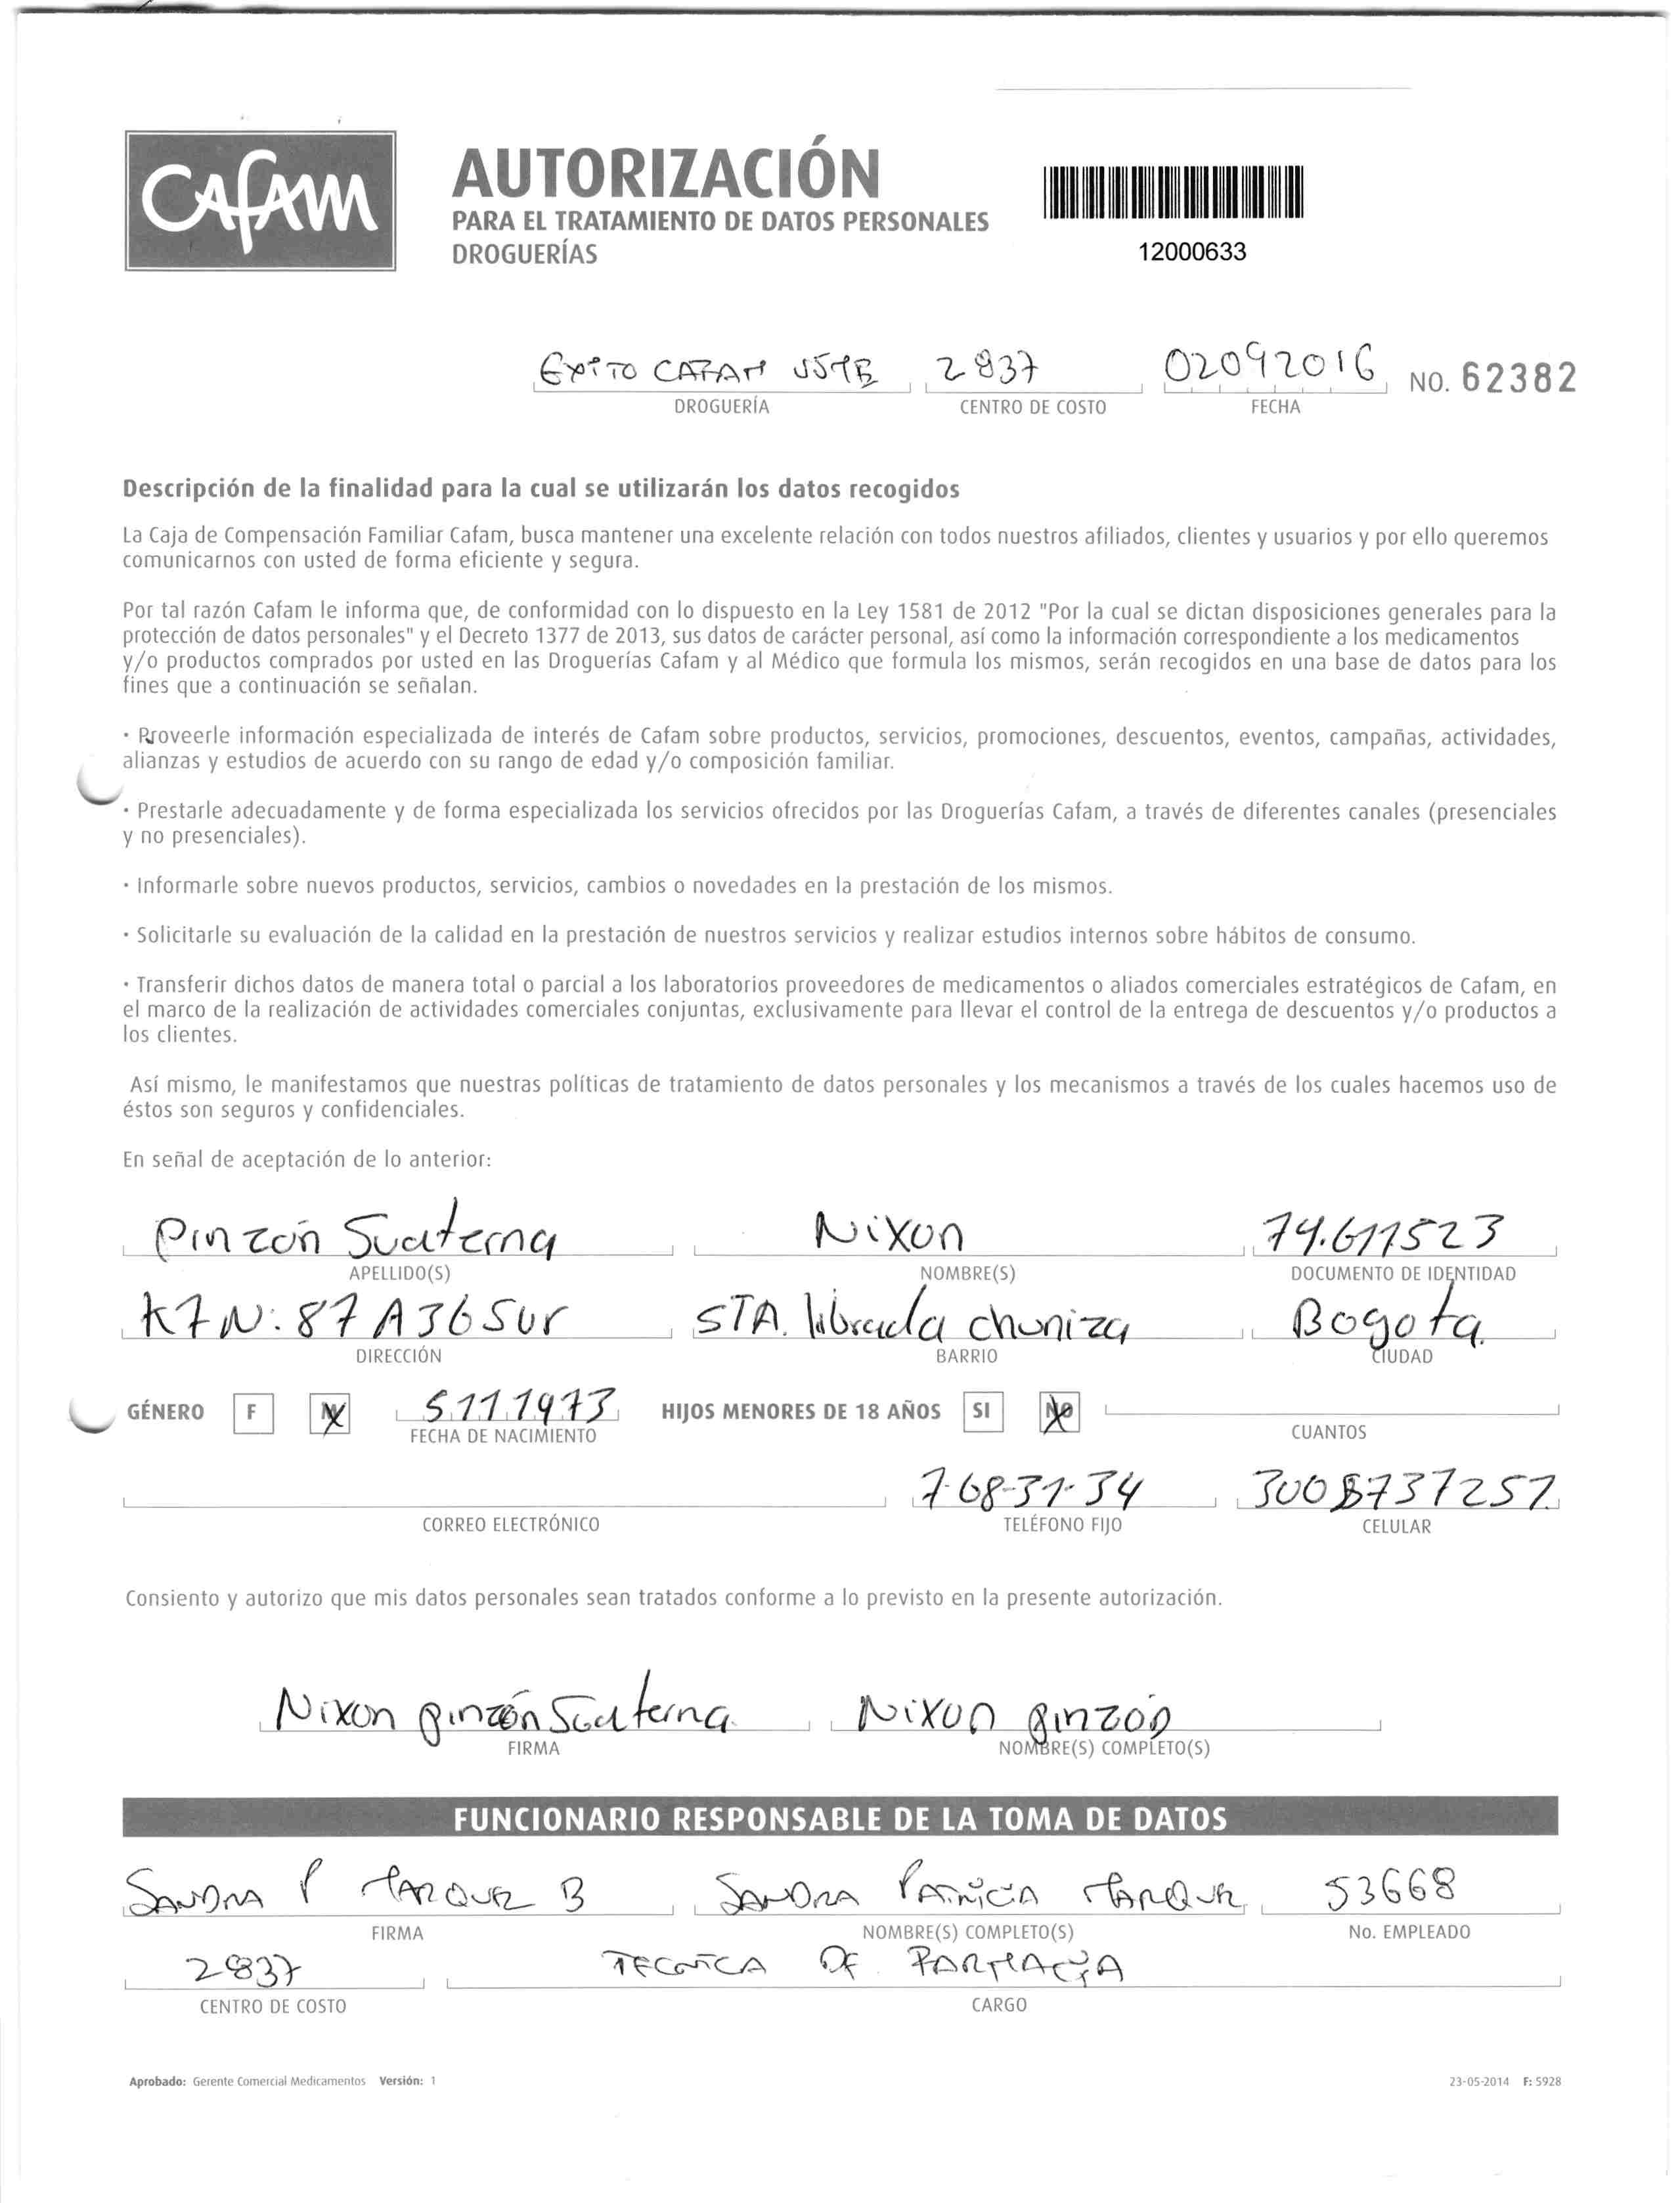 CAFAM
AUTORIZACIÓN
PARA EL TRATAMIENTO DE DATOS PERSONALES
DROGUERÍAS
12000633
EXITO CAFAM USME 2837 02092016 NO. 62382
DROGUERÍA CENTRO DE COSTO FECHA
Descripción de la finalidad para la cual se utilizarán los datos recogidos
La Caja de Compensación Familiar Cafam, busca mantener una excelente relación con todos nuestros afiliados, clientes y usuarios y por ello queremos
comunicarnos con usted de forma eficiente y segura.
Por tal razón Cafam le informa que, de conformidad con lo dispuesto en la Ley 1581 de 2012 "Por la cual se dictan disposiciones generales para la
protección de datos personales" y el Decreto 1377 de 2013, sus datos de carácter personal, así como la información correspondiente a los medicamentos
y/o productos comprados por usted en las Droguerías Cafam y al Médico que formula los mismos, serán recogidos en una base de datos para los
fines que a continuación se señalan.
· Proveerle información especializada de interés de Cafam sobre productos, servicios, promociones, descuentos, eventos, campañas, actividades,
alianzas y estudios de acuerdo con su rango de edad y/o composición familiar.
· Prestarle adecuadamente y de forma especializada los servicios ofrecidos por las Droguerías Cafam, a través de diferentes canales (presenciales
y no presenciales).
· Informarle sobre nuevos productos, servicios, cambios o novedades en la prestación de los mismos.
· Solicitarle su evaluación de la calidad en la prestación de nuestros servicios y realizar estudios internos sobre hábitos de consumo.
· Transferir dichos datos de manera total o parcial a los laboratorios proveedores de medicamentos o aliados comerciales estratégicos de Cafam, en
el marco de la realización de actividades comerciales conjuntas, exclusivamente para llevar el control de la entrega de descuentos y/o productos a
los clientes.
Así mismo, le manifestamos que nuestras políticas de tratamiento de datos personales y los mecanismos a través de los cuales hacemos uso de
éstos son seguros y confidenciales.
En señal de aceptación de lo anterior:
Pinzón Suaterna Nixon 79.611523
APELLIDO(S) NOMBRE(S) DOCUMENTO DE IDENTIDAD
K7 N: 87 A 36 Sur STA. librada chuniza Bogota
DIRECCIÓN BARRIO CIUDAD
GÉNERO F M 5.11.1973 HIJOS MENORES DE 18 AÑOS SI NO
FECHA DE NACIMIENTO CUANTOS
7-68-31-34 3008737257
CORREO ELECTRÓNICO TELÉFONO FIJO CELULAR
Consiento y autorizo que mis datos personales sean tratados conforme a lo previsto en la presente autorización.
Nixon pinzón Suaterna Nixon pinzón
FIRMA NOMBRE(S) COMPLETO(S)
FUNCIONARIO RESPONSABLE DE LA TOMA DE DATOS
SANDRA P MARQUEZ B SANDRA PATRICIA MARQUEZ 53668
FIRMA NOMBRE(S) COMPLETO(S) No. EMPLEADO
2837 TECNICA DE FARMACIA
CENTRO DE COSTO CARGO
Aprobado: Gerente Comercial Medicamentos Versión: 1 23-05-2014 F: 5928